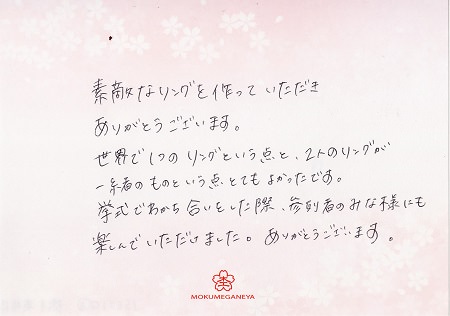 素敵なリングを作っていただき
ありがとうございます。
世界で1つのリングという点と、2人のリングが
一緒者のものという点とてもよかったです。
挙式でわかち合いをした際、参列者のみな様にも
楽しんでいただけました。ありがとうございます。
MOKUMEGANEYA